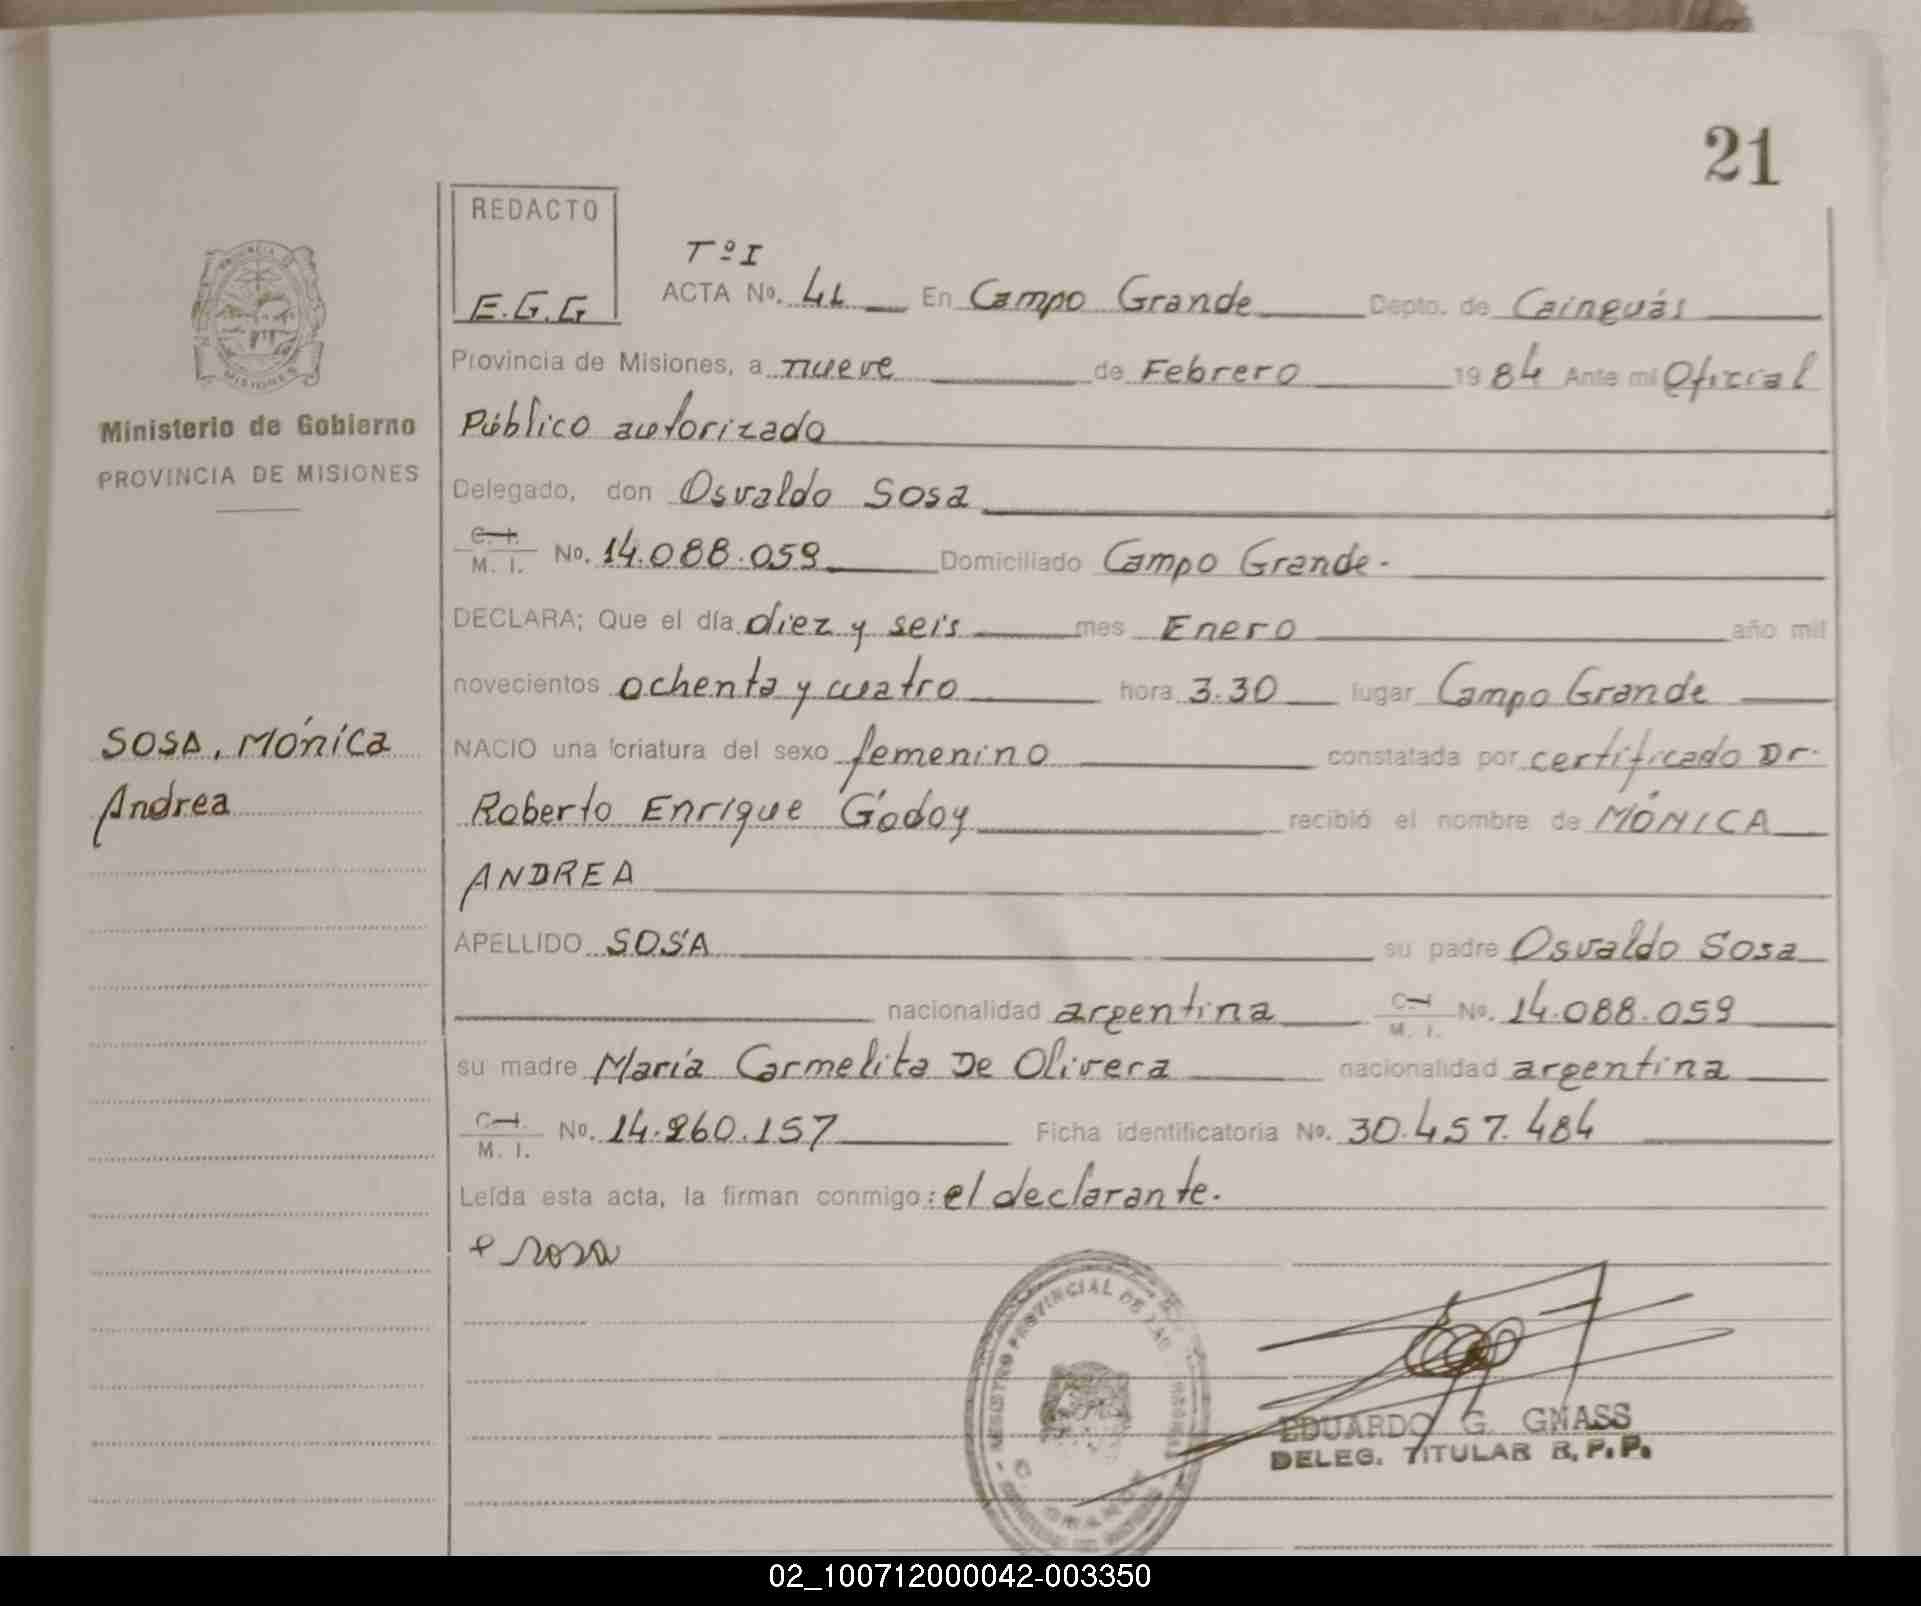 21
REDACTO
E.G.G
Tº I
ACTA Nº. 41 En Campo Grande Depto. de Cainguás
Provincia de Misiones, a nueve de Febrero 19 84 Ante mi Oficial
Público autorizado
Ministerio de Gobierno
PROVINCIA DE MISIONES
Delegado, don Osvaldo Sosa
C. I. M. I. No. 14.088.059 Domiciliado Campo Grande.
DECLARA; Que el día diez y seis mes Enero año mil
novecientos ochenta y cuatro hora 3.30 lugar Campo Grande
SOSA, Mónica
Andrea
NACIO una criatura del sexo femenino constatada por certificado Dr.
Roberto Enrique Godoy recibió el nombre de MÓNICA
ANDREA
APELLIDO SOSA su padre Osvaldo Sosa
nacionalidad argentina C. I. M. I. No. 14.088.059
su madre María Carmelita De Olivera nacionalidad argentina
C. I. M. I. No. 14.260.157 Ficha identificatoria No. 30.457.484
Leída esta acta, la firman conmigo: el declarante.
Sosa
REGISTRO PROVINCIAL DE LAS
EDUARDO G. GNASS
DELEG. TITULAR R.P.P.
02_100712000042-003350